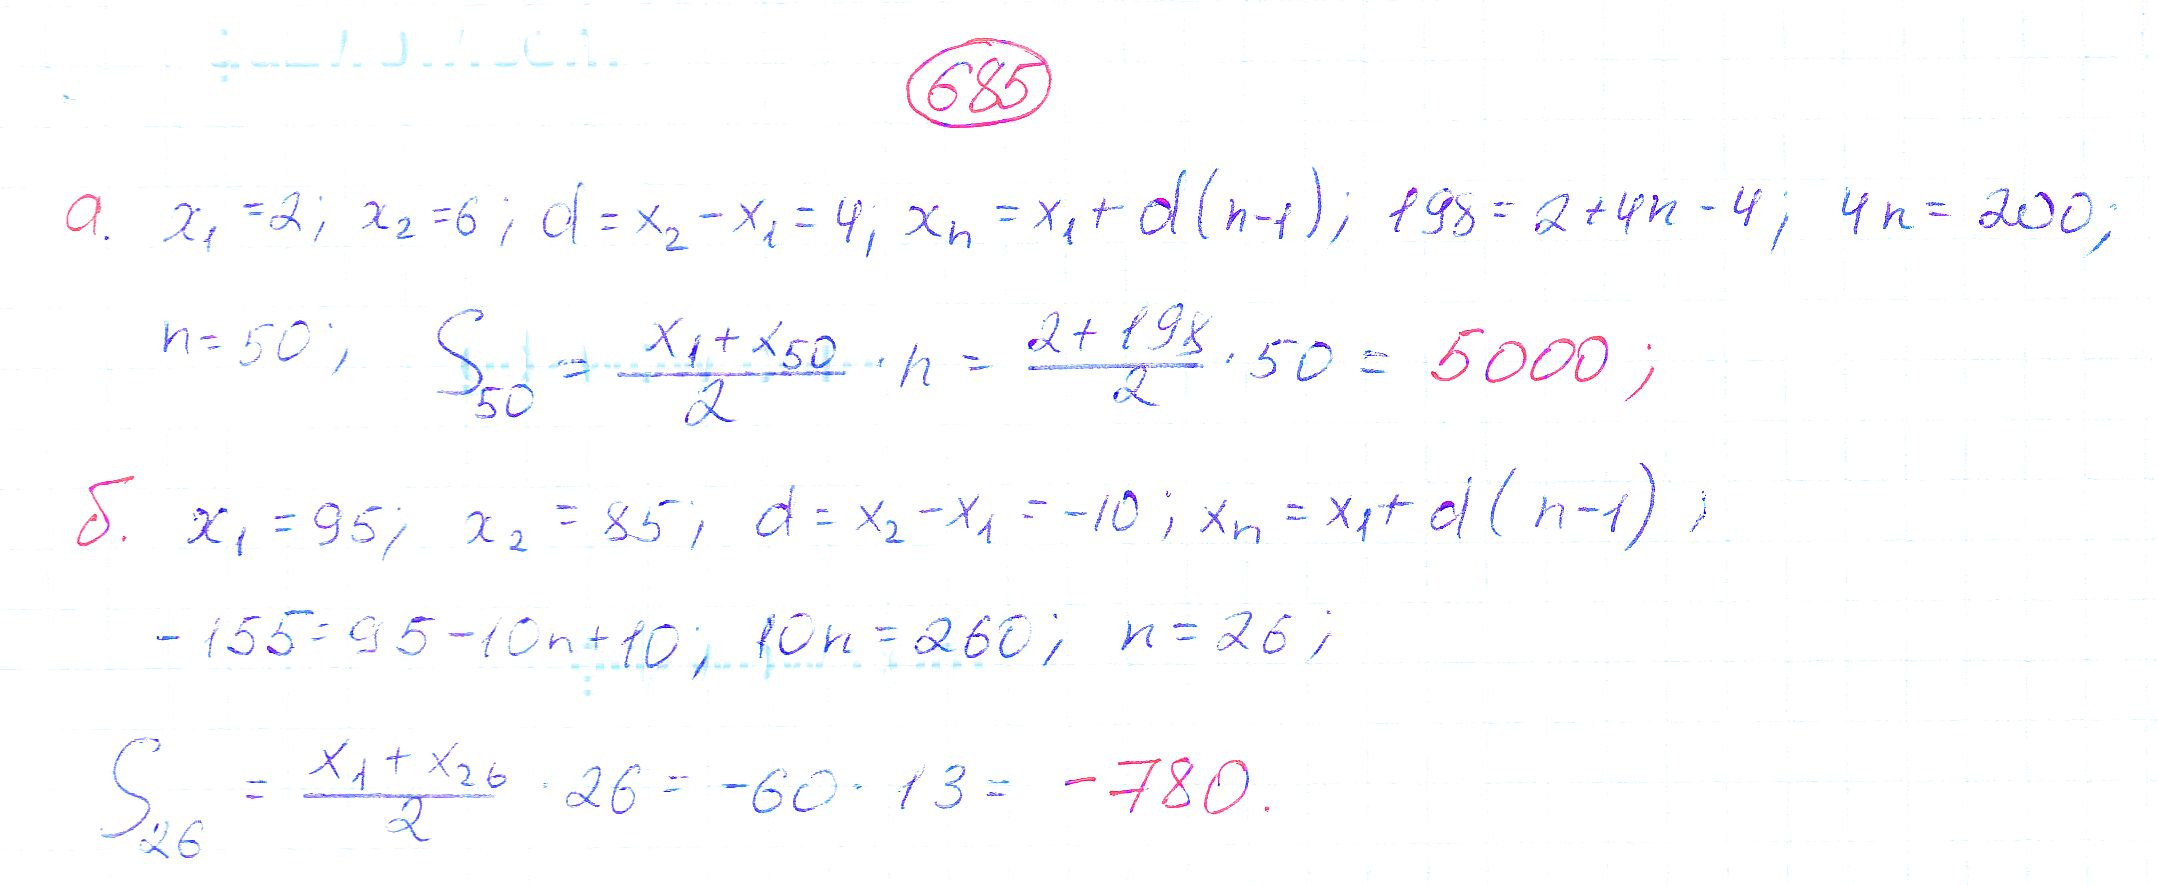 685
а. x₁ = 2; x₂ = 6; d = x₂ - x₁ = 4; xₙ = x₁ + d(n-1); 198 = 2 + 4n - 4; 4n = 200;
n = 50; S₅₀ = (x₁ + x₅₀)/2 · n = (2 + 198)/2 · 50 = 5000;
б. x₁ = 95; x₂ = 85; d = x₂ - x₁ = -10; xₙ = x₁ + d(n-1);
-155 = 95 - 10n + 10; 10n = 260; n = 26;
S₂₆ = (x₁ + x₂₆)/2 · 26 = -60 · 13 = -780.